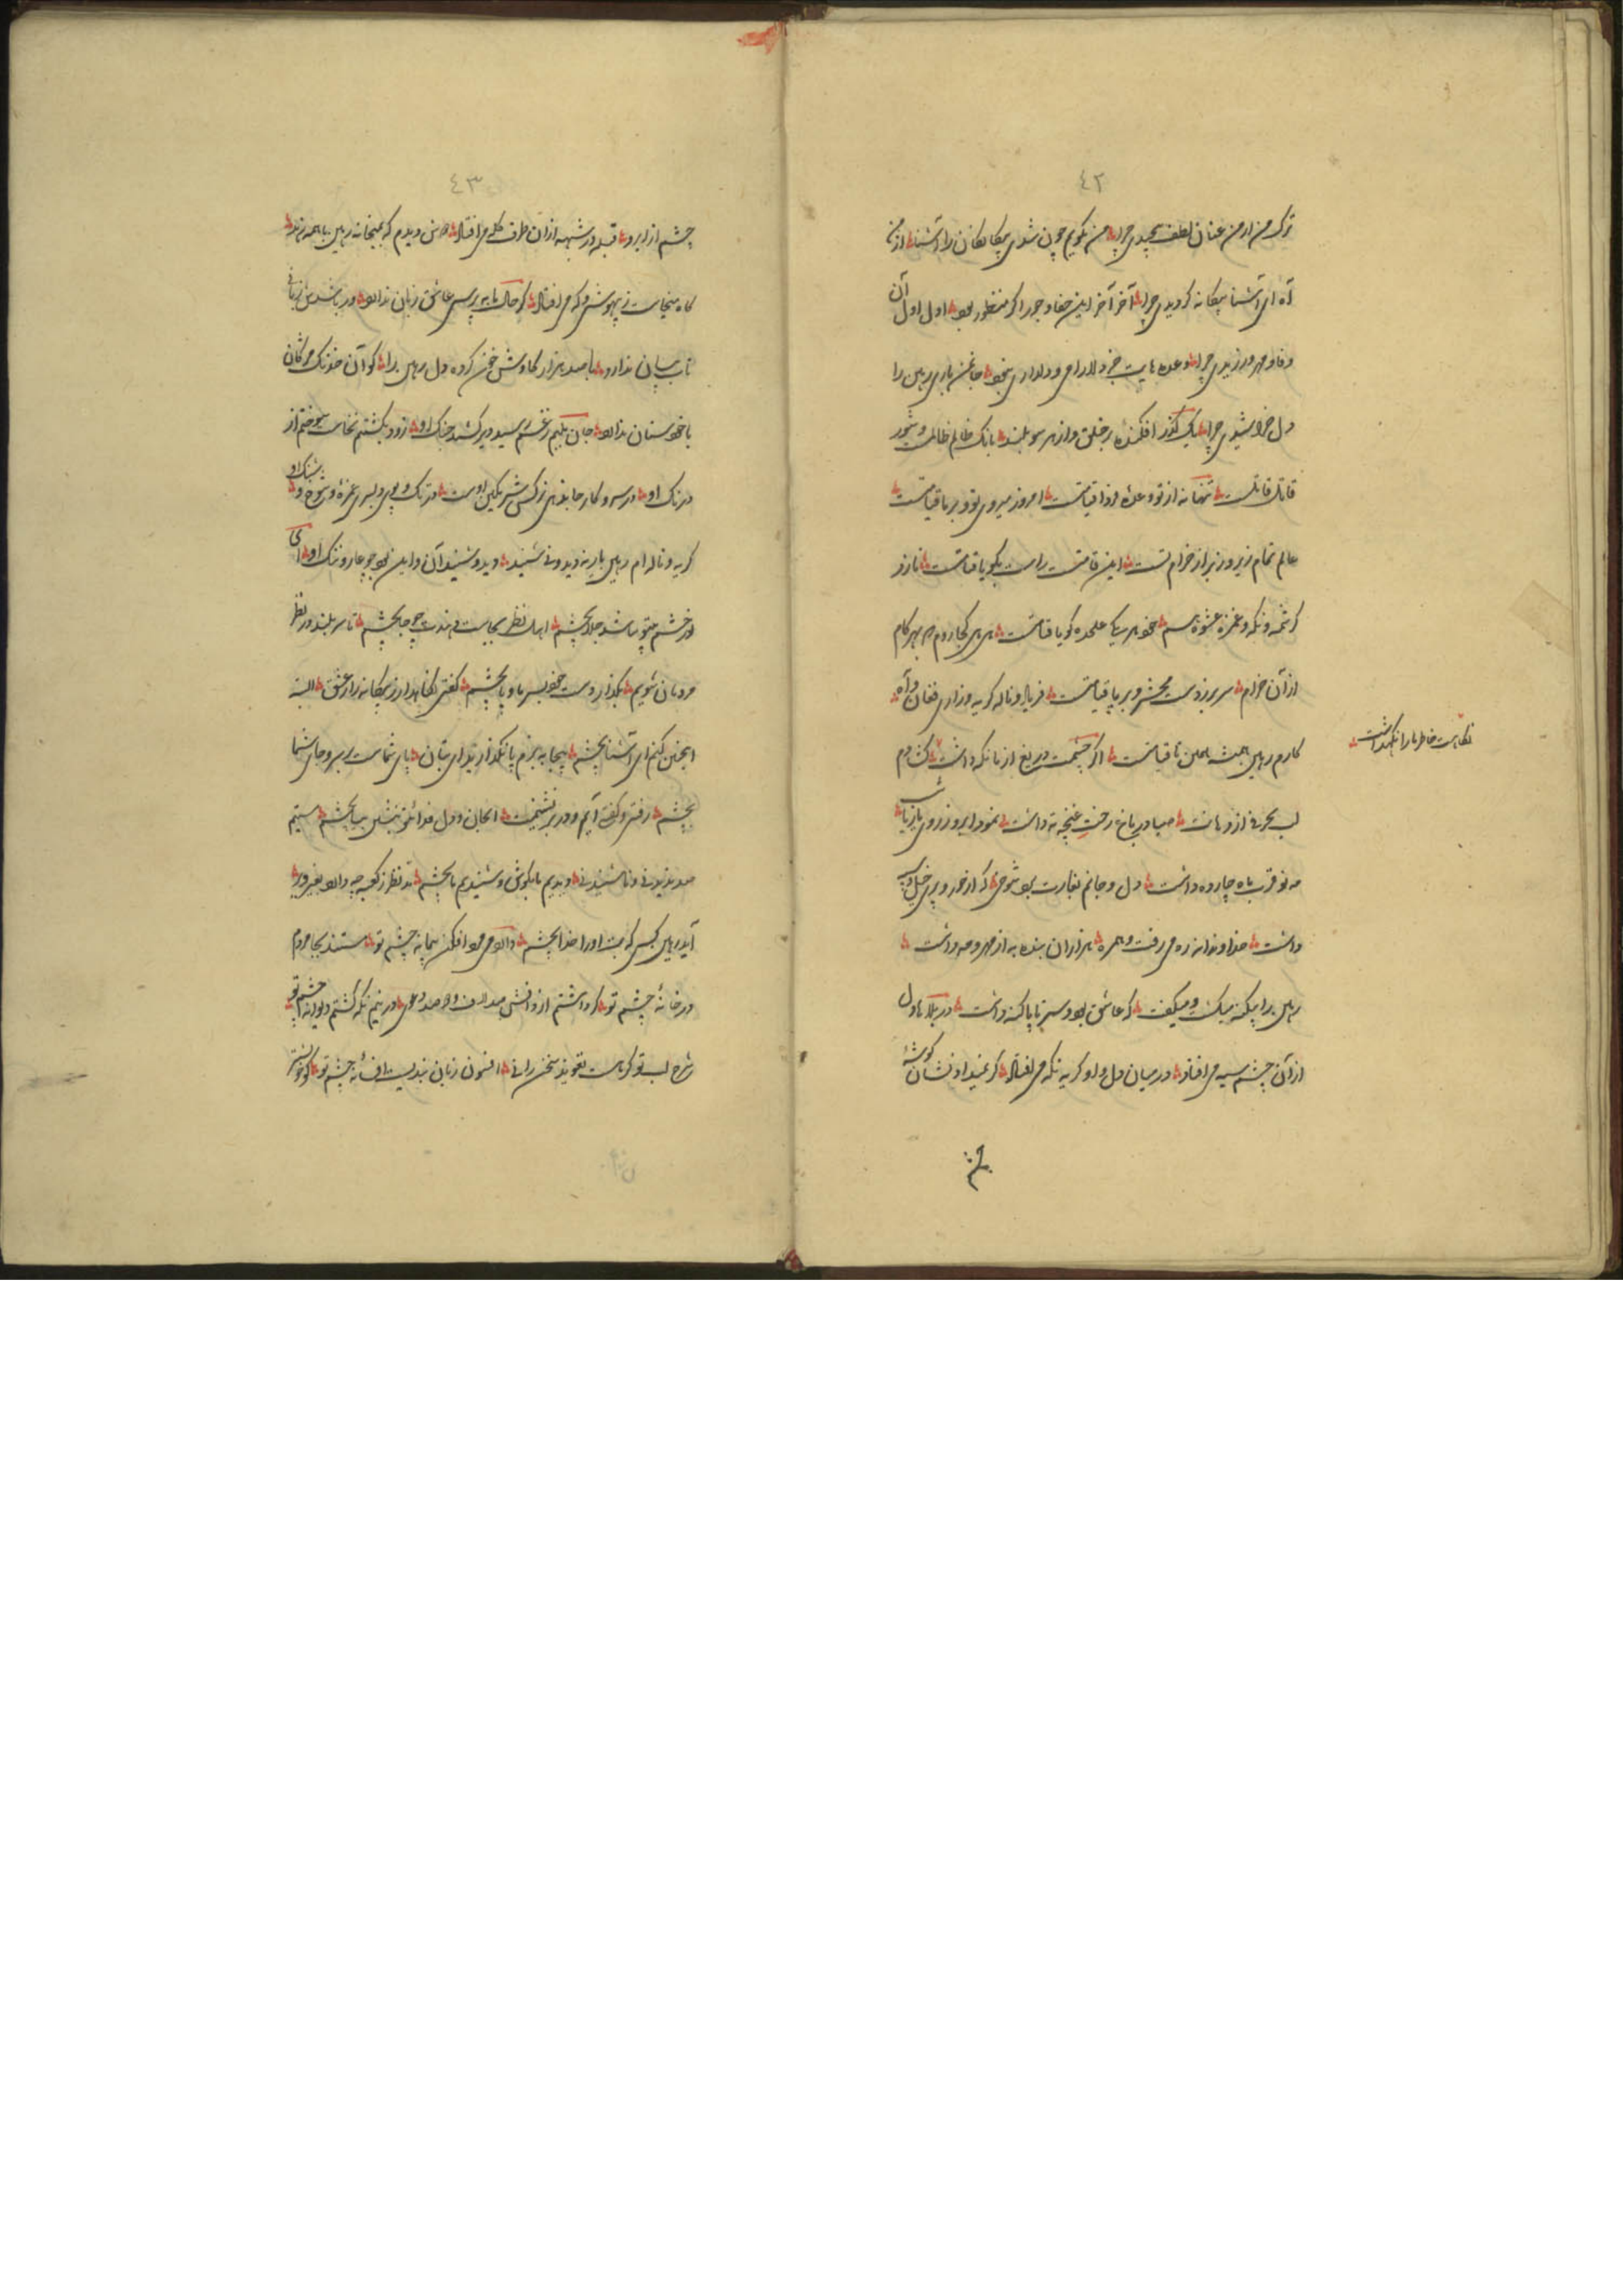 ٤٢
ترک من از من عنان لطف پیچیدی چرا من نکویم چون شدی بیکانکان را آشنا از من
آه ای آشنا بیکانه کردیدی چرا آخر آخر این جفا و جور اکر منظور بود اول اول آن
وفا و مهر ورزیدی چرا وعده هایت جز دلارامی و دلداری نبود جانمن باری رهین را
دل خراشیدی چرا یک کذر افکنده بر خلق و از هر سو بلند بانک ظالم ظالمت و شور
قاتل قاتلت تنها نه از تو وعده فردا قیامتست امروز میروی تو و برپا قیامتست
عالم تمام زیر و زبر از خرام تست این قامتست راست بکو یا قیامتست ناز و
کرشمه و نکه و غمزه عشوه هم خود هر یک علیحده کویا قیامتست هی هی کجا روم که بهر کام
از آن خرام سر بر زدست محشر و برپا قیامتست فریاد و ناله کریه و زاری فغان و آه
کارم رهین همیشه همین تا قیامتست اکر چشمت دریغ از ما نکه داشت
نکاهت خاطر ما را نکهداشت
لب بحرفی از دهانت صبا در باغ رخت غنچه ته داشت نمود ابرو ز روی
مه نو قرب ماه چارده داشت دل و جانم بغارت برد شوخی که از حور و پری خیل و سپه
داشت خداوندانه ره میرفت و همره هزاران بنده به از مهر و مه داشت
رهین را بیکنه میکشت و میکفت که عاشق بود و سر تا پا کنه داشت در بلاها دل
از آن چشم سیه می افتاد در میان دل و او کر به نکه می افتاد کر نمیداد نشان کوشه
چشم
٤٣
چشم از ابرو قبله در شبهه از آن طرف کله می افتاد دوش دیدم که بمیخانه رهین با همه زهد
کاه میخاست ز بیهوشی و که می افتاد کر حال ما بپرسی عاشق زبان ندارد ور باشدش زبانی
تاب بیان ندارد با صد هزار کاوش خون کرده دل رهین را کو آن خدنک مژکان
باخوستان ندارد جان بلبم ز غم رسید دیر کشید جنک او زود بکشتنم نخاست سوختم از
درنک او در سر و کار جادوی نرکس شرمکین اوست در تک و پوی دلبری غمزه و شوخ و شنک او
کریه و ناله ام رهین یار ندید و نی شنید دید و شنید آن و این بود چو عار و ننک او ای
نور خشم بتو باشد جلا بچشم اهل نظر بجاست دهندت چو جا بچشم تا سر بلند در نظر
مردمان شویم بکذار دست خود بسر ما و پا بچشم کفتی نکاهدار ز بیکانه راز عشق البته
اینچنین کنم ای آشنا بچشم بیجا به بزم پا نکذارید ای بتان پای شماست بر سر و جای شما
بچشم رفتی و کفته آیم و در بر نشینمت ای جان و دل فدای تو بنشین بیا بچشم ستیم
صد ندیدنی و ناشنیدنی دیدیم ما بکوش و شنیدیم ما بچشم تو نظر ز کعبه چه دارد بغیر دیر
آید رهین کسی که بت او را خدا بچشم دارد می مرد افکن پیمانه چشم تو مستند بجا مردم
در خانهٔ چشم تو کر داشتم از دانش صد لاف و دو صد دعوی در نیم نکه کشتم دیوانه چشم تو
شرح لب تو کر هست تعویذ سخن رانی افسون زبان بندیست افسانه چشم تو